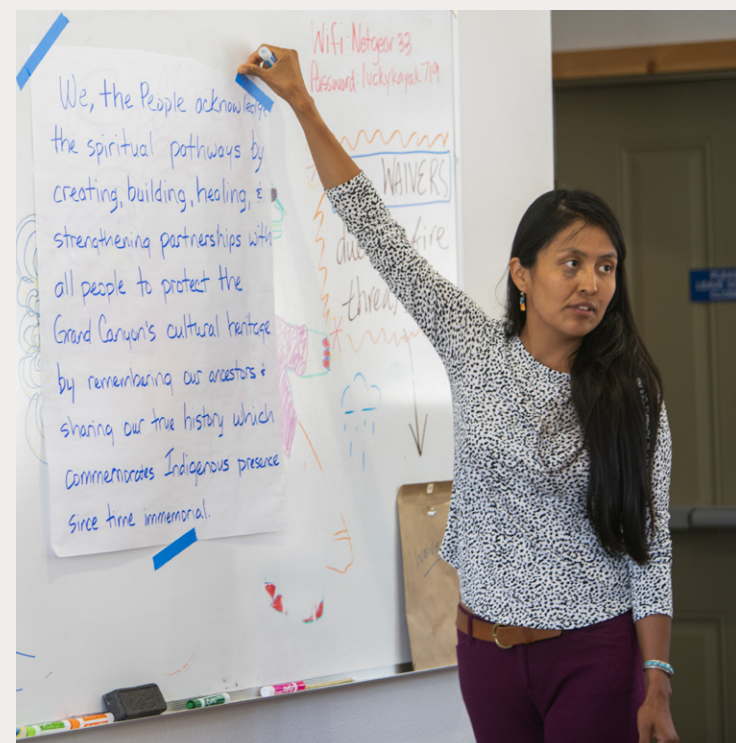 We, the People acknowledge
the spiritual pathways by
creating, building, healing, &
strengthening partnerships with
all people to protect the
Grand Canyon's cultural heritage
by remembering our ancestors &
sharing our true history which
commemorates Indigenous presence
since time immemorial.
Wifi: Netgear 33
Password: luckykayak719
WAIVERS
fire
PLEASE
LEAVE